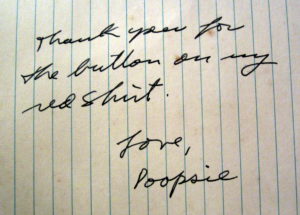 Thank you for
the button on my
red shirt.
Love,
Poopsie